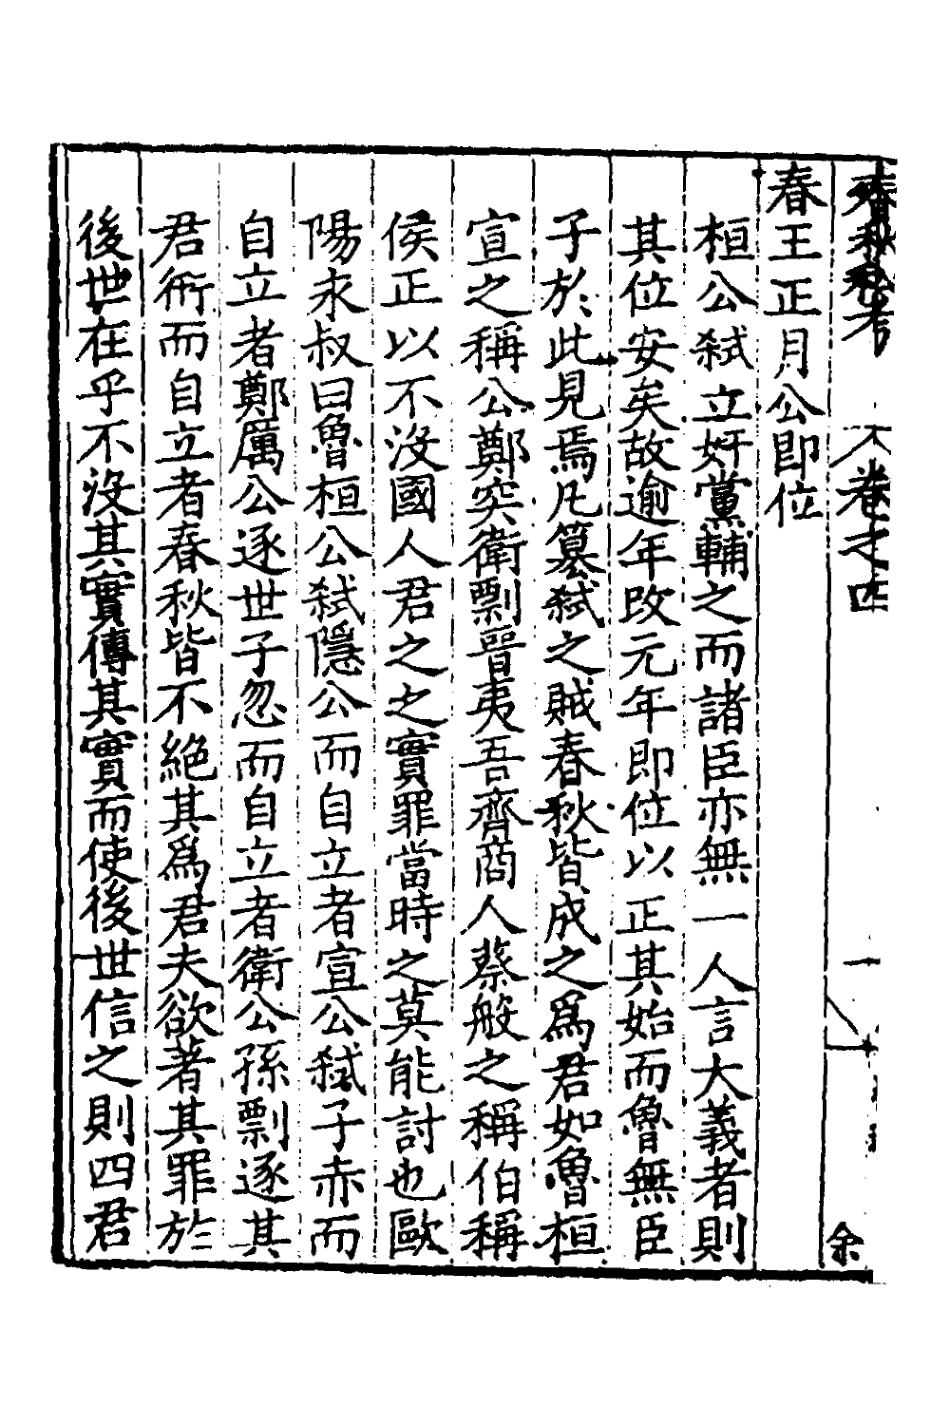 春秋私考 卷之四 余
春王正月公即位
桓公弑立奸黨輔之而諸臣亦無一人言大義者則
其位安矣故逾年改元年即位以正其始而魯無臣
子於此見焉凡篡弑之賊春秋皆成之爲君如魯桓
宣之稱公鄭突衛剽晉夷吾齊商人蔡般之稱伯稱
侯正以不沒國人君之之實罪當時之莫能討也歐
陽永叔曰魯桓公弑隱公而自立者宣公弑子赤而
自立者鄭厲公逐世子忽而自立者衛公孫剽逐其
君衎而自立者春秋皆不絕其爲君夫欲著其罪於
後世在乎不沒其實傳其實而使後世信之則四君